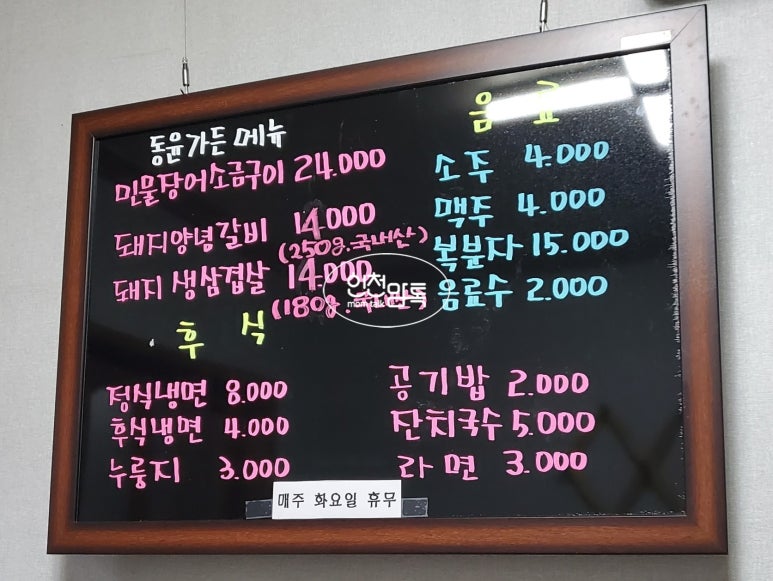 동윤가든 메뉴
민물장어소금구이 24.000
돼지양념갈비 14.000
(250g.국내산)
돼지 생삼겹살 14.000
(180g.
음 료
소주 4.000
맥주 4.000
복분자 15.000
음료수 2.000
후 식
정식냉면 8.000
후식냉면 4.000
누룽지 3.000
공기밥 2.000
잔치국수 5.000
라면 3.000
매주 화요일 휴무
인천맘톡
mom talk